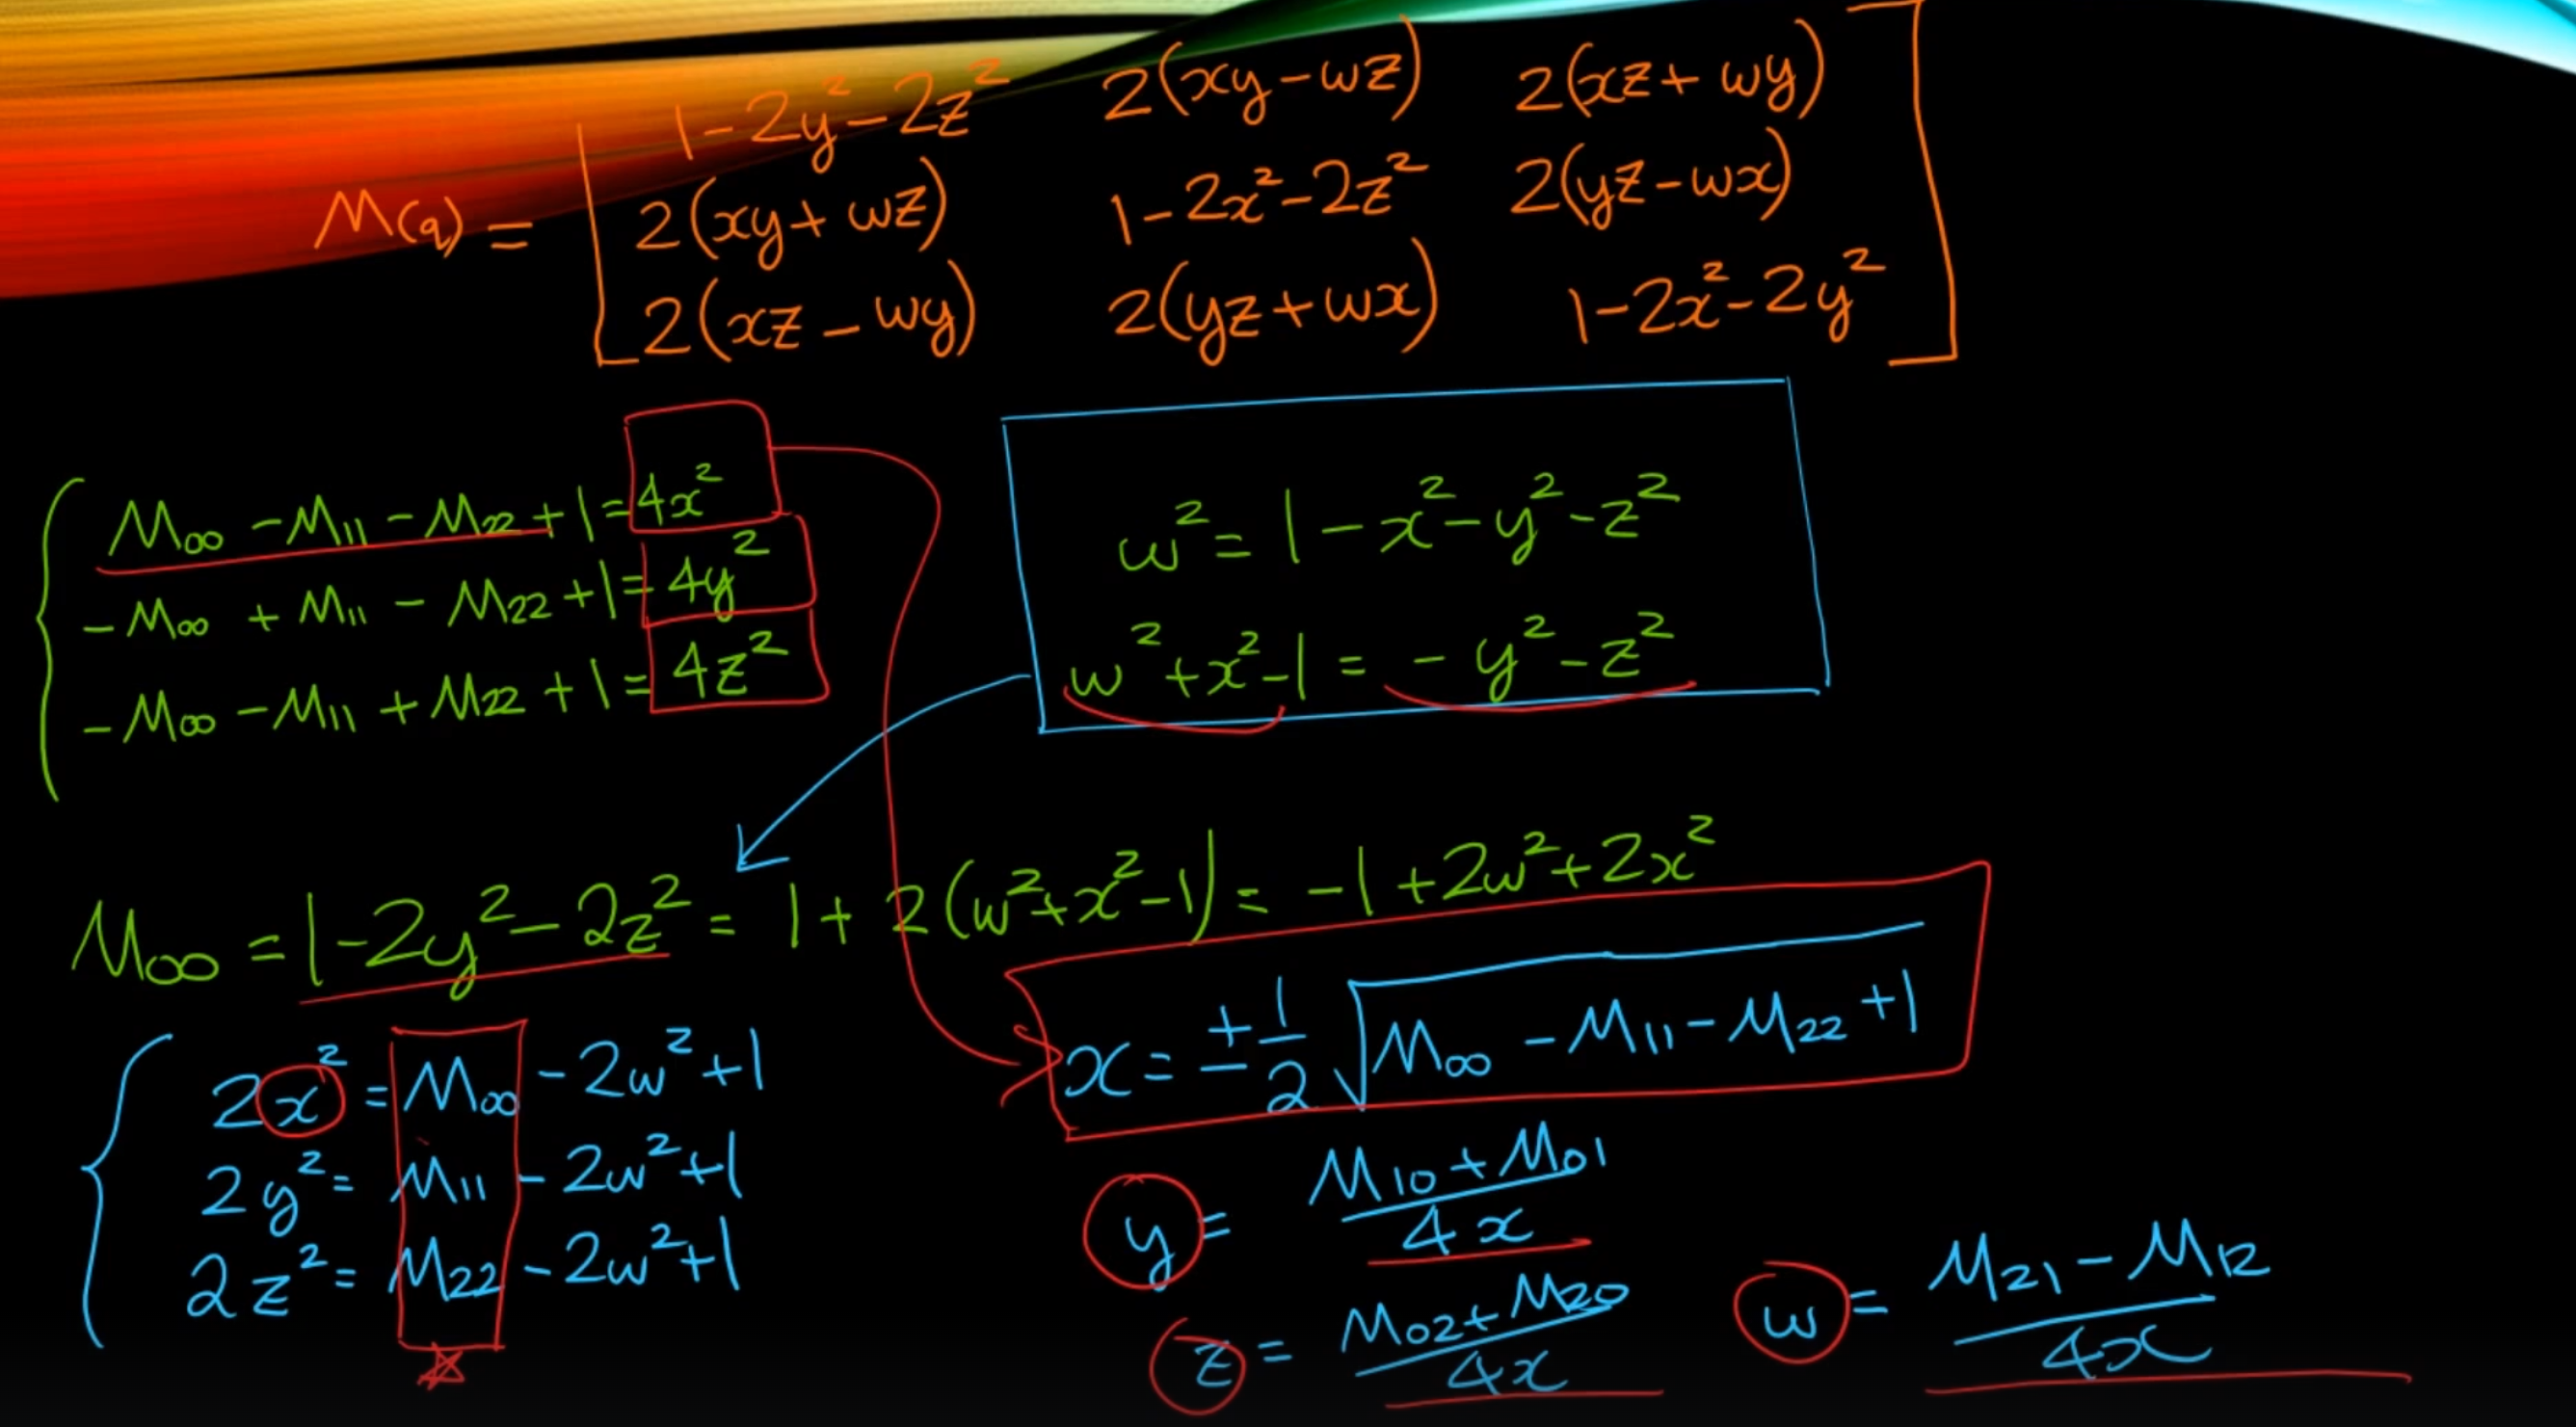 1-2y²-2z² 2(xy-wz) 2(xz+wy)
M(q) = 2(xy+wz) 1-2x²-2z² 2(yz-wx)
2(xz-wy) 2(yz+wx) 1-2x²-2y²
M₀₀ -M₁₁ -M₂₂ +1=4x²
-M₀₀ +M₁₁ -M₂₂ +1=4y²
-M₀₀ -M₁₁ +M₂₂ +1=4z²
w² = 1-x²-y²-z²
w²+x²-1 = -y²-z²
M₀₀ = 1-2y²-2z² = 1+2(w²+x²-1) = -1+2w²+2x²
2x² = M₀₀ -2w²+1
2y² = M₁₁ -2w²+1
2z² = M₂₂ -2w²+1
x = ±1/2 √(M₀₀ -M₁₁ -M₂₂ +1)
y = M₁₀+M₀₁ / 4x
z = M₀₂+M₂₀ / 4x
w = M₂₁-M₁₂ / 4x